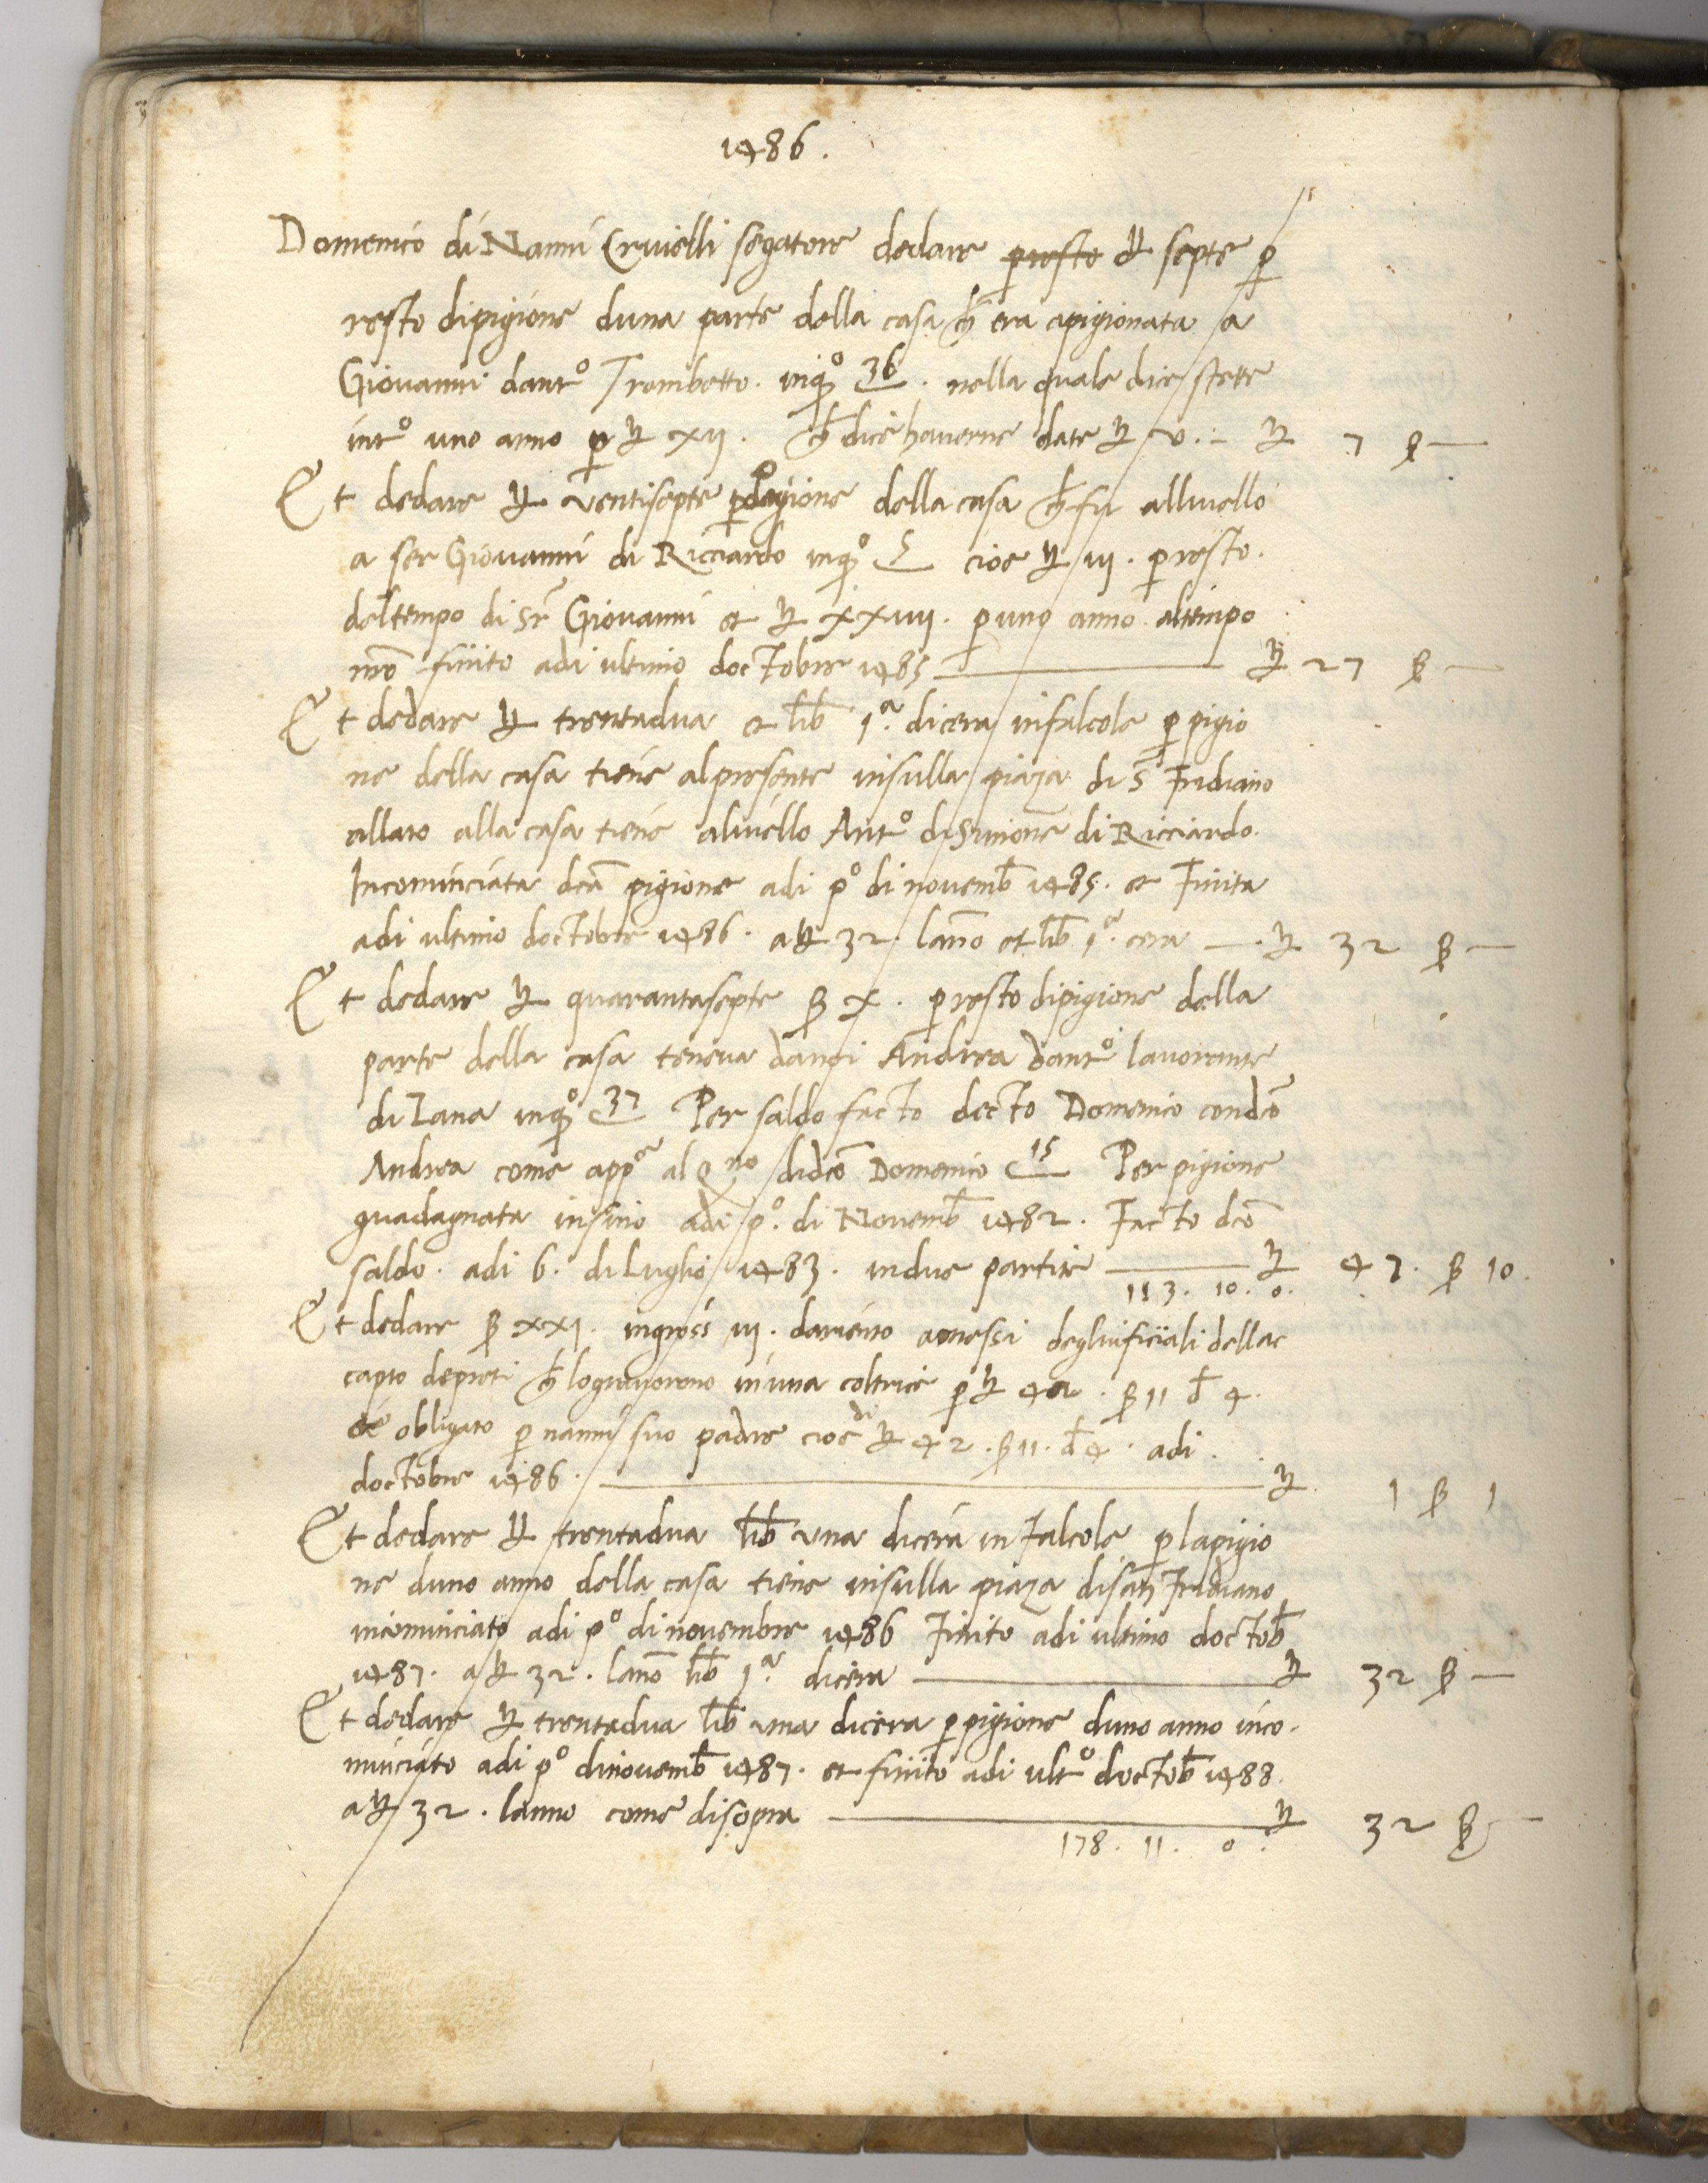 1486.
Domenico di Nanni Crivelli segatore dedare presto ł septe ꝑ
resto dipigione duna parte della casa cħ era apigionata a
Giovanni dantº Trombetto. inqº 36. nella quale dice stette
intº uno anno ꝑ ł xij. cħ dice haverne date ł v. — ł 7 ß —
Et dedare ł ventisepte ꝑ pigione della casa cħ fu allivello
a ser Giovanni di Ricciardo inqº 5 cioe ł iij. ꝑ resto.
deltempo di sr̄ Giovanni et ł xxiiij. ꝑ uno anno altempo
nr̄o finito adi ultimo doctobre 1485 — ł 27 ß —
Et dedare ł trentadua et lib̄ 1ª. dicera infalcole ꝑ pigio
ne della casa tiene alpresente insulla piaza di S Fridiano
allato alla casa tiene alivello Antº di Simone di Ricciardo.
Incominciata dc̄a pigione adi pº di novemb̄ 1485. et Finita
adi ultimo doctobre 1486. a ł 32. lan̄o et lib̄ 1ª. cera — ł 32 ß —
Et dedare ł quarantasepte ß x. ꝑ resto dipigione della
parte della casa teneva danoi Andrea dantº lavorante
di Lana inqº 37 Per saldo facto decto Domenico condc̄o
Andrea come appª al Qno didc̄o Domenico 15 Per pigione
guadagnata insino adi pº. di Novemb̄ 1482. Facto dc̄o
saldo. adi 6. di Luglio 1483. indue partite — ł 47. ß 10.
113. 10. 0.
Et dedare ß xxj. ingrossi iij. dariento a messi degliuficiali della
capto depreti cħ lo gravorono inuna coltrice ꝑ ł 42. ß 11 đ 4.
obligato ꝑ nanni suo padre cioe di ł 42. ß 11. đ 4. adi .
doctobre 1486. — ł 1 ß 1
Et dedare ł trentadua lib̄ una dicera in Falcole ꝑ lapigio
ne duno anno della casa tiene insulla piaza disan Fridiano
incominciato adi pº di novembre 1486 Finito adi ultimo doctob̄
1487. a ł 32. lan̄o lib̄ 1ª dicera — ł 32 ß —
Et dedare ł trentadua lib̄ una dicera ꝑ pigione duno anno inco.
minciato adi pº dinovemb̄ 1487. et finito adi ultº doctob̄ 1488.
a ł 32. lanno come disopra — ł 32 ß —
178. 11. 0.